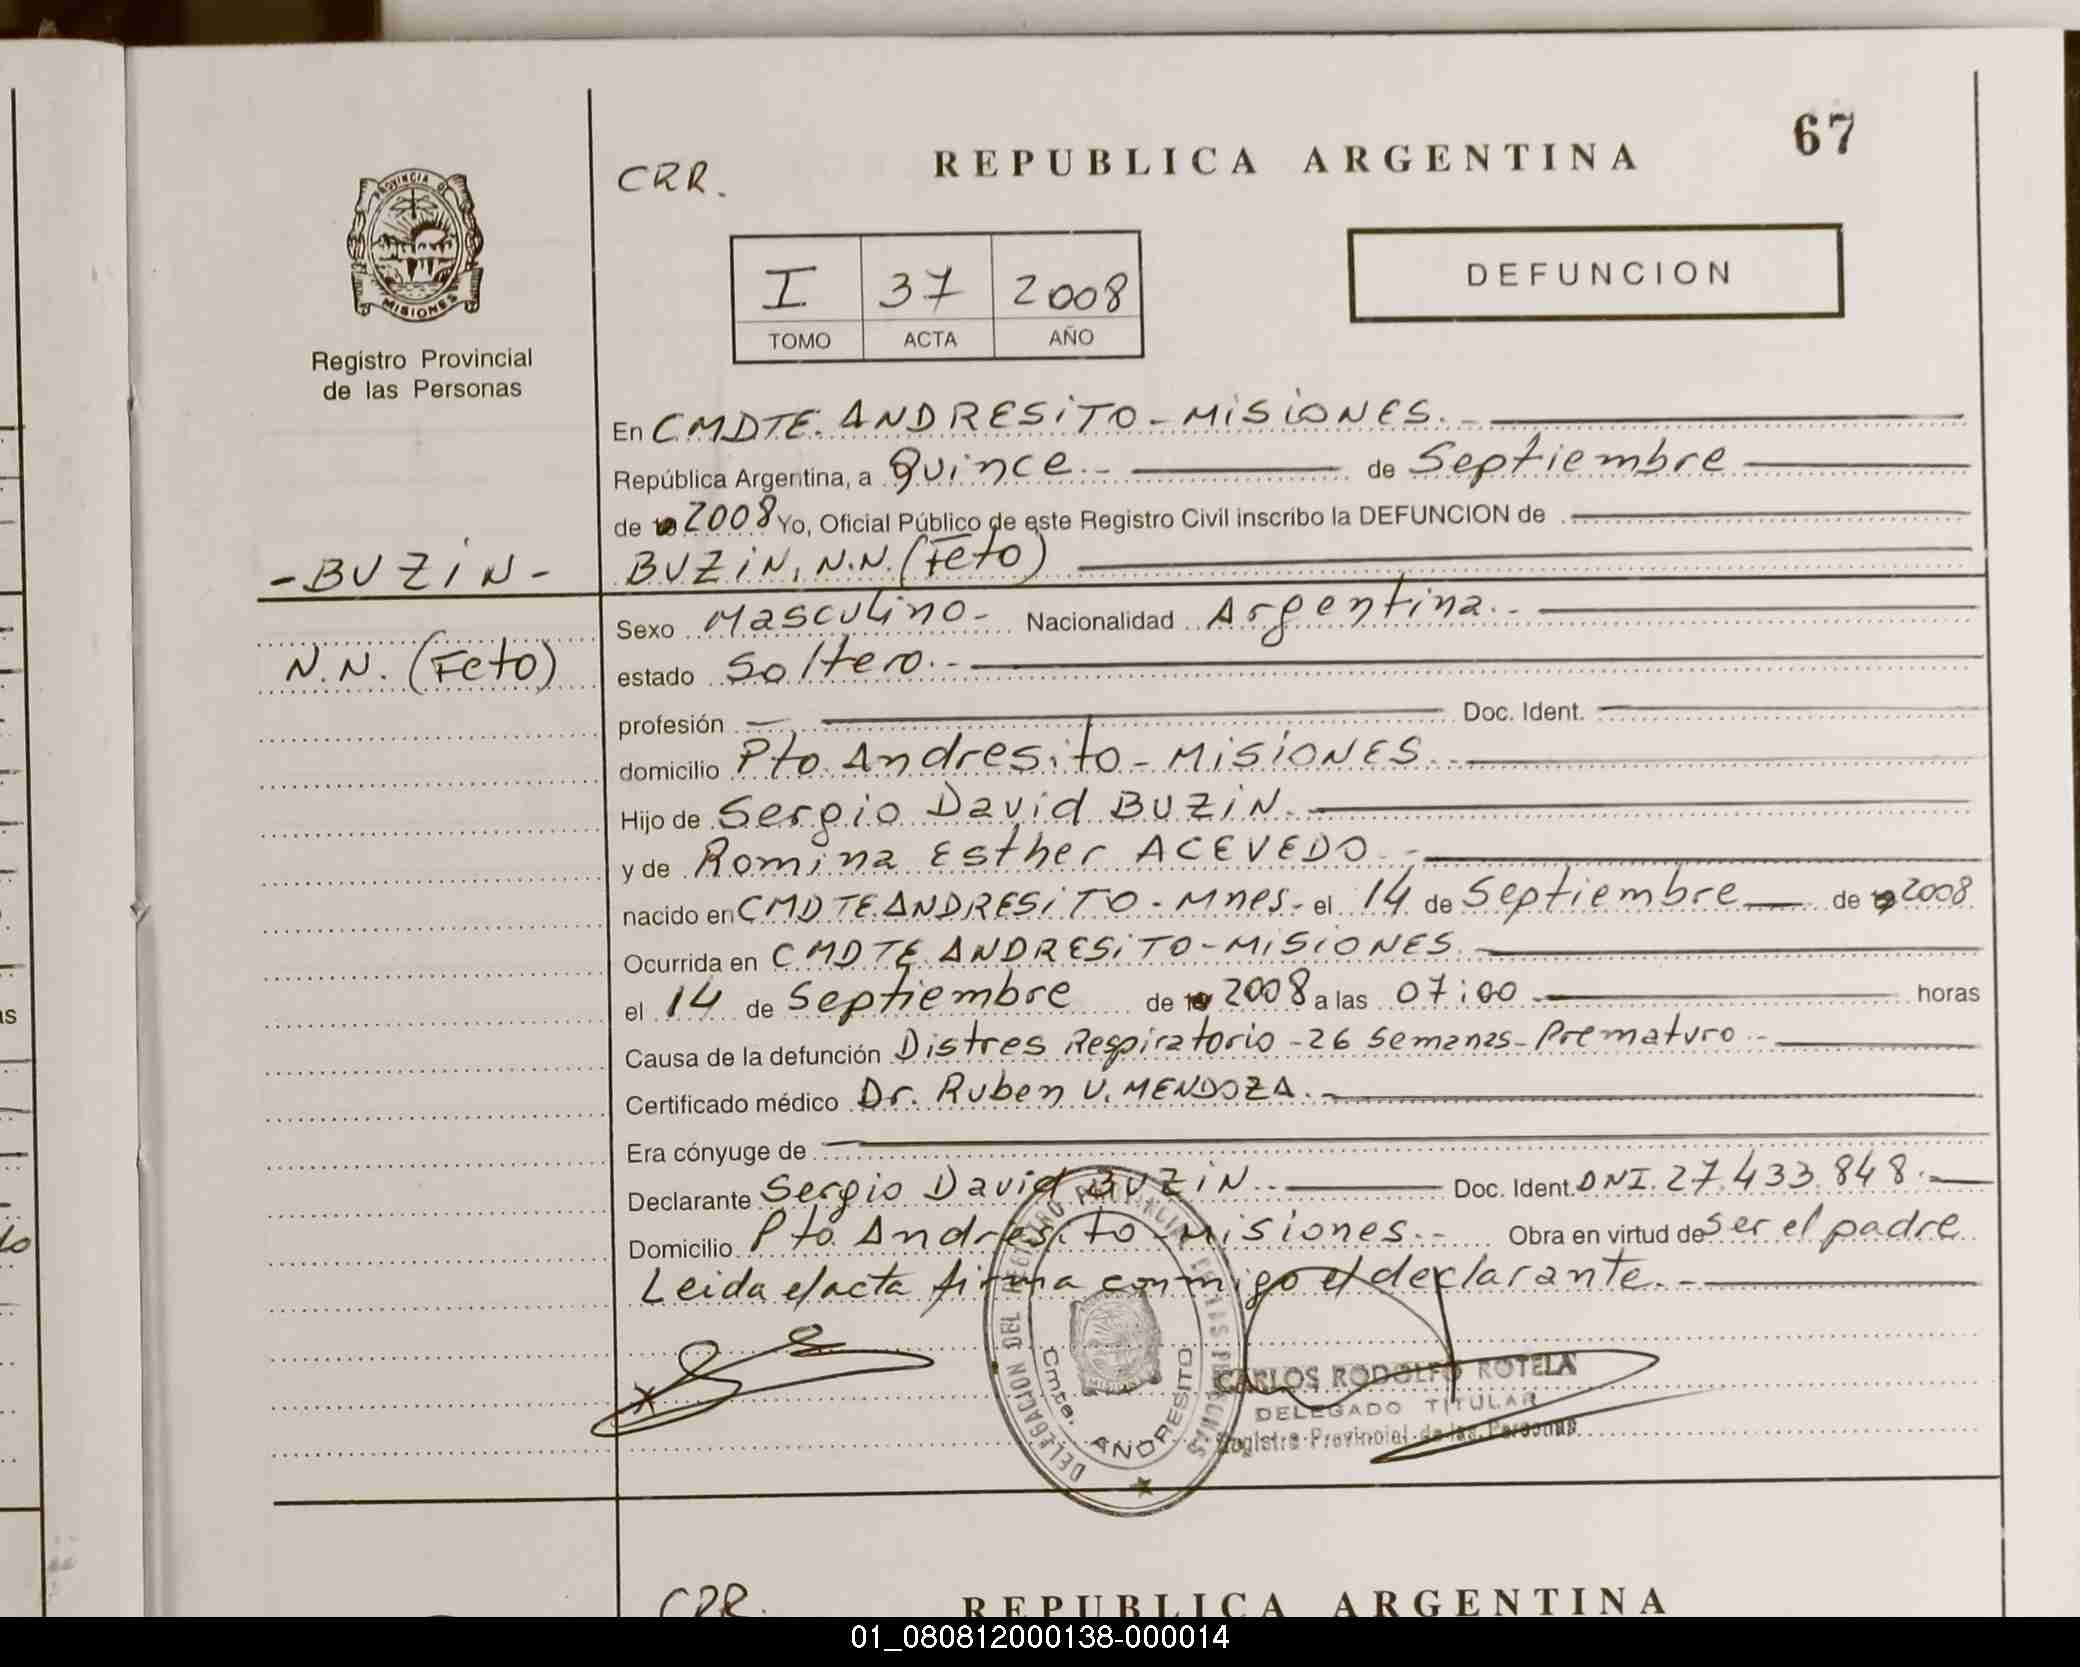 67
CRR.
REPUBLICA ARGENTINA
PROVINCIA DE
MISIONES
Registro Provincial
de las Personas
I 37 2008
TOMO ACTA AÑO
DEFUNCION
En CMDTE. ANDRESiTO - MiSiONES. -
República Argentina, a Quince.- de Septiembre
de 19 2008 Yo, Oficial Público de este Registro Civil inscribo la DEFUNCION de
- BUZiN -
BUZiN, N.N. (Feto)
N.N. (Feto)
Sexo Masculino - Nacionalidad Argentina. -
estado Soltero. -
profesión — Doc. Ident.
domicilio Pto. Andresito - MiSiONES. -
Hijo de Sergio David BUZiN. -
y de Romina Esther ACEVEDO. -
nacido en CMDTE. ANDRESiTO - Mnes - el 14 de Septiembre de 19 2008
Ocurrida en CMDTE. ANDRESiTO - MiSiONES. -
el 14 de Septiembre de 19 2008 a las 07:00 horas
Causa de la defunción Distres Respiratorio - 26 Semanas - Prematuro. -
Certificado médico Dr. Ruben V. MENDOZA. -
Era cónyuge de
Declarante Sergio David BUZiN. - Doc. Ident. DNI. 27.433.848. -
Domicilio Pto. Andresito - Misiones. - Obra en virtud de Ser el padre
Leida el acta firma conmigo el declarante. -
DELEGACION DEL REGISTRO PROVINCIAL DE LAS PERSONAS
Cmte. ANDRESITO
CARLOS RODOLFO ROTELA
DELEGADO TITULAR
Registro Provincial de las Personas
CRR.
REPUBLICA ARGENTINA
01_080812000138-000014